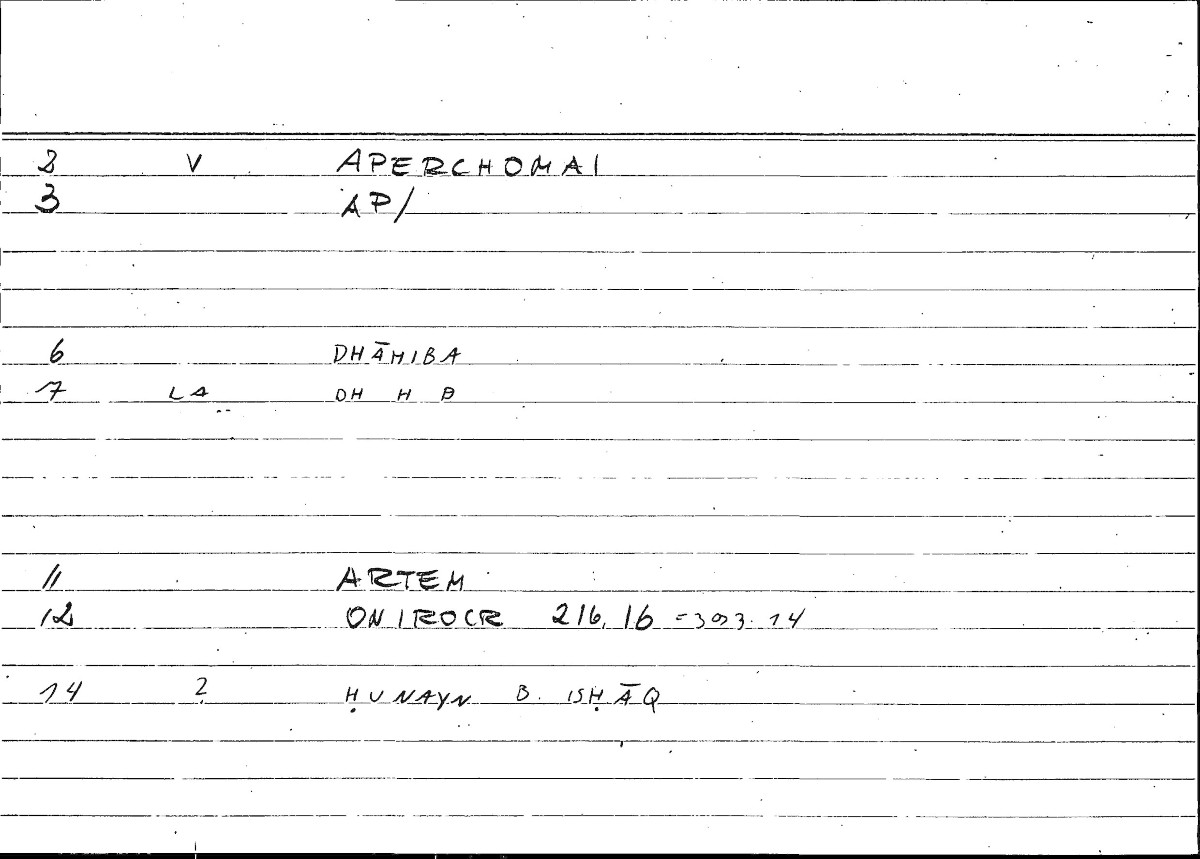 2 V APERCHOMAI
3 AP/
6 DHĀHIBA
7 LA DH H B
11 ARTEM
12 ONIROCR 216, 16 = 393. 14
14 ? ḤUNAYN B. ISḤĀQ